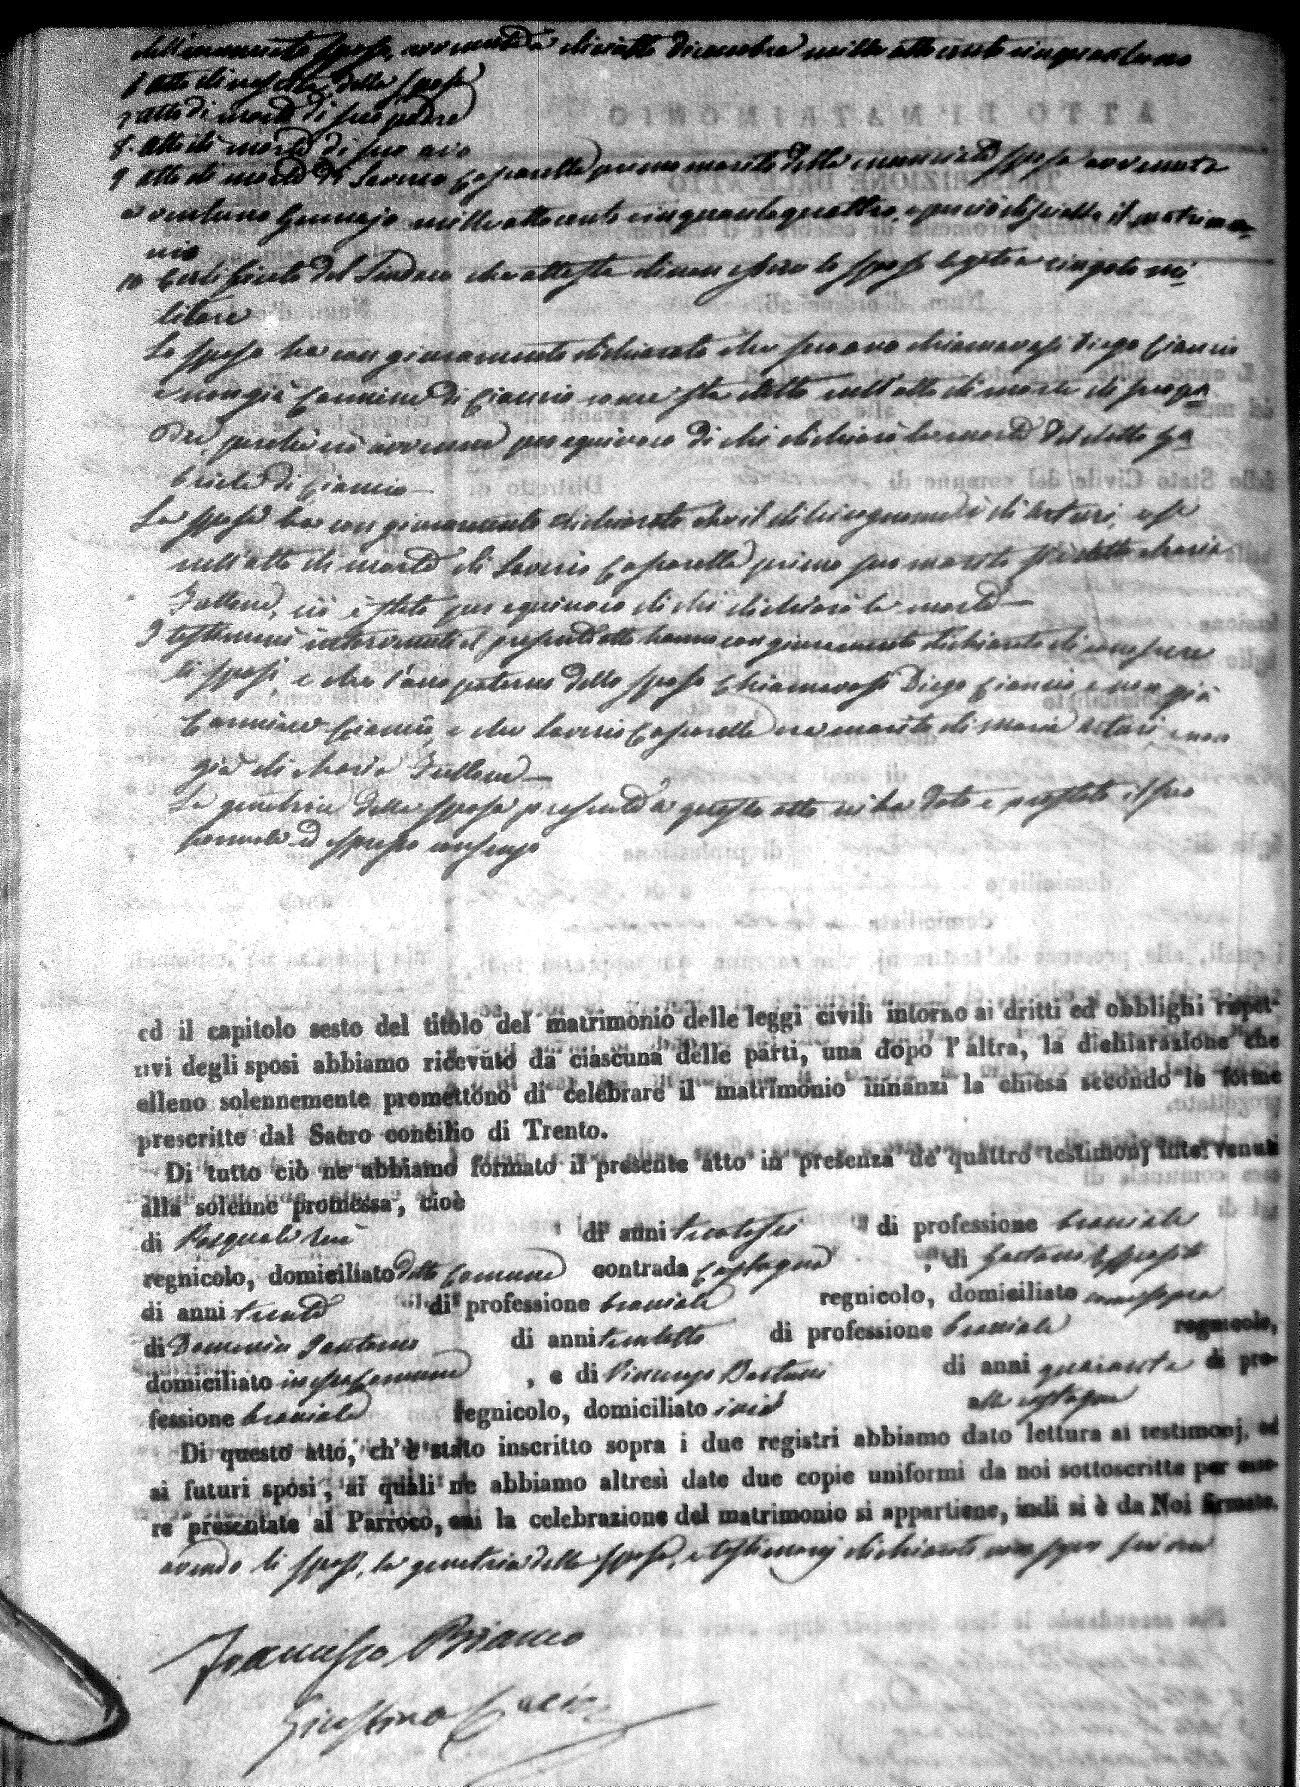 dell'enunciato sposo, avvenuta a dicisette dicembre mille otto cento cinquantuno
6 Atto di nascita della sposa
7 atto di morte di suo padre
8. Atto di morte di suo avo
9 Atto di morte di Saverio Casparella primo marito della enunciata sposa avvenuta
a ventuno Gennajo mille otto cento cinquantaquattro, e perciò disciolto il matrimo=
nio
10 Certificato del Sindaco che attesta di non essere lo sposo legato a cingolo mi
litare
Lo sposo ha con giuramento dichiarato che suo avo chiamavasi Diego Ciancio
e non già Carmine di Ciancio come sta detto nell'atto di morte di suo pa
dre, perchè ciò avvenne per equivoco di chi dichiarò la morte del detto Ga
briele di Ciancio —
La sposa ha con giuramento dichiarato che il di lei cognome è di Arturi, e se
nell'atto di morte di Saverio Casparella primo suo marito sta detto Maria
ciò è stato per equivoco di chi dichiarò la morte —
I testimoni intervenuti al presente atto hanno con giuramento dichiarato di conoscere
li sposi e che l'avo paterno dello sposo chiamavasi Diego Ciancio e non già
Carmine Ciancio e che Saverio Casparella era marito di Maria Arturi e non
già di Maria —
La genitrice della sposa presente a questo atto vi ha dato e prestato il suo
formale ed espresso consenso
ed il capitolo sesto del titolo del matrimonio delle leggi civili intorno ai dritti ed obblighi rispet-
tivi degli sposi abbiamo ricevuto da ciascuna delle parti, una dopo l'altra, la dichiarazione che
elleno solennemente promettono di celebrare il matrimonio innanzi la chiesa secondo le forme
prescritte dal Sacro concilio di Trento.
Di tutto ciò ne abbiamo formato il presente atto in presenza de' quattro testimonj intervenuti
alla solenne promessa, cioè
di Pasquale di anni trentasei di professione bracciale
regnicolo, domiciliato detto Comune contrada Castagna, di Gaetano Esposito
di anni trenta di professione bracciale regnicolo, domiciliato come sopra
di Domenico Santoro di anni trentotto di professione bracciale regnicolo,
domiciliato in esso Comune, e di Vincenzo di anni quaranta di pro-
fessione bracciale regnicolo, domiciliato ivi alla castagna
Di questo atto, ch'è stato inscritto sopra i due registri abbiamo dato lettura ai testimonj, ed
ai futuri sposi, ai quali ne abbiamo altresì date due copie uniformi da noi sottoscritte per esse-
re presentate al Parroco, cui la celebrazione del matrimonio si appartiene, indi si è da Noi firmato,
avendo li sposi, la genitrice della sposa, e testimonj dichiarato non saper scrivere
Francesco Bianco
Giustino